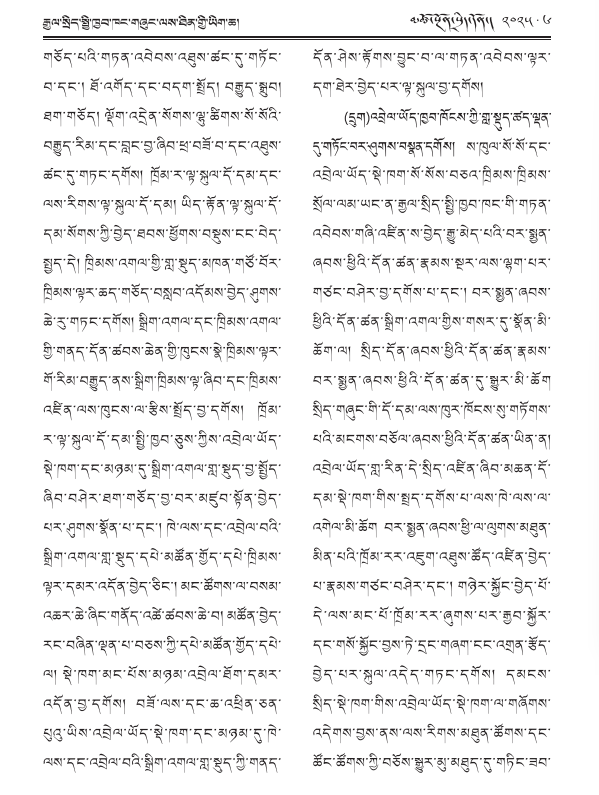 རྒྱལ་སྲིད་སྤྱི་ཁྱབ་ཁང་གཞུང་ལས་ཐིན་གྱི་ཡིག་ཆ།
༢༠༢༥ · ༦
གཅོད་པའི་གཏན་འབེབས་འཐུས་ཚང་དུ་གཏོང་
བ་དང་། ཐོ་འགོད་དང་བདག་སྤྲོད། བརྒྱུད་སྒྲུབ།
ཐག་གཅོད། ལྡོག་འདྲེན་སོགས་ལྟ་ཚིགས་སོ་སོའི་
བརྒྱུད་རིམ་དང་བླང་བྱ་ཞིབ་ཕྲ་བཟོ་བ་དང་འཐུས་
ཚང་དུ་གཏང་དགོས། ཁྲོམ་ར་ལྟ་སྐུལ་དོ་དམ་དང་
ལས་རིགས་ལྟ་སྐུལ་དོ་དམ། ཡིད་རྟོན་ལྟ་སྐུལ་དོ་
དམ་སོགས་ཀྱི་བྱེད་ཐབས་ཕྱོགས་བསྡུས་ངང་བེད་
སྤྱད་དེ། ཁྲིམས་འགལ་གྱི་གླ་སྡུད་མཁན་གཙོ་བོར་
ཁྲིམས་ལྟར་ཆད་གཅོད་བསླབ་འདོམས་བྱེད་ཤུགས་
ཆེ་རུ་གཏང་དགོས། སྒྲིག་འགལ་དང་ཁྲིམས་འགལ་
གྱི་གནད་དོན་ཚབས་ཆེན་གྱི་ཁུངས་སྣེ་ཁྲིམས་ལྟར་
གོ་རིམ་བརྒྱུད་ནས་སྒྲིག་ཁྲིམས་ལྟ་ཞིབ་དང་ཁྲིམས་
འཛིན་ལས་ཁུངས་ལ་རྩིས་སྤྲོད་བྱ་དགོས། ཁྲོམ་
ར་ལྟ་སྐུལ་དོ་དམ་སྤྱི་ཁྱབ་ཅུས་ཀྱིས་འབྲེལ་ཡོད་
སྡེ་ཁག་དང་མཉམ་དུ་སྒྲིག་འགལ་གླ་སྡུད་བྱ་སྤྱོད་
ཞིབ་བཤེར་ཐག་གཅོད་བྱ་བར་མཛུབ་སྟོན་བྱེད་
པར་ཤུགས་སྣོན་པ་དང་། ཁེ་ལས་དང་འབྲེལ་བའི་
སྒྲིག་འགལ་གླ་སྡུད་དཔེ་མཚོན་གྱོད་དཔེ་ཁྲིམས་
ལྟར་དམར་འདོན་བྱེད་ཅིང་། མང་ཚོགས་ལ་བསམ་
འཆར་ཆེ་ཞིང་གནོད་འཚེ་ཚབས་ཆེ་བ། མཚོན་བྱེད་
རང་བཞིན་ལྡན་པ་བཅས་ཀྱི་དཔེ་མཚོན་གྱོད་དཔེ་
ལ། སྡེ་ཁག་མང་པོས་མཉམ་འབྲེལ་ཐོག་དམར་
འདོན་བྱ་དགོས། བཟོ་ལས་དང་ཆ་འཕྲིན་ཅན་
པུའུ་ཡིས་འབྲེལ་ཡོད་སྡེ་ཁག་དང་མཉམ་དུ་ཁེ་
ལས་དང་འབྲེལ་བའི་སྒྲིག་འགལ་གླ་སྡུད་ཀྱི་གནད་
དོན་ཤེས་རྟོགས་བྱུང་བ་ལ་གཏན་འབེབས་ལྟར་
དག་ཐེར་བྱེད་པར་ལྟ་སྐུལ་བྱ་དགོས།
(དྲུག)འབྲེལ་ཡོད་ཁྱབ་ཁོངས་ཀྱི་གླ་སྡུད་ཚད་ལྡན་
དུ་གཏོང་བར་ཤུགས་བསྣན་དགོས། ས་ཁུལ་སོ་སོ་དང་
འབྲེལ་ཡོད་སྡེ་ཁག་སོ་སོས་བཅའ་ཁྲིམས་ཁྲིམས་
སྲོལ་ལམ་ཡང་ན་རྒྱལ་སྲིད་སྤྱི་ཁྱབ་ཁང་གི་གཏན་
འབེབས་གཞི་འཛིན་ས་བྱེད་རྒྱུ་མེད་པའི་བར་སྨྱན་
ཞབས་ཕྱིའི་དོན་ཚན་རྣམས་སྔར་ལས་ལྷག་པར་
གཙང་བཤེར་བྱ་དགོས་པ་དང་། བར་སྨྱན་ཞབས་
ཕྱིའི་དོན་ཚན་སྒྲིག་འགལ་གྱིས་གསར་དུ་སྣོན་མི་
ཆོག་ལ། སྲིད་དོན་ཞབས་ཕྱིའི་དོན་ཚན་རྣམས་
བར་སྨྱན་ཞབས་ཕྱིའི་དོན་ཚན་དུ་སྒྱུར་མི་ཆོག
སྲིད་གཞུང་གི་དོ་དམ་ལས་ཁུར་ཁོངས་སུ་གཏོགས་
པའི་མངགས་བཅོལ་ཞབས་ཕྱིའི་དོན་ཚན་ཡིན་ན།
འབྲེལ་ཡོད་གླ་རིན་དེ་སྲིད་འཛིན་ཞིབ་མཆན་དོ་
དམ་སྡེ་ཁག་གིས་སྤྲད་དགོས་པ་ལས་ཁེ་ལས་ལ་
འགེལ་མི་ཆོག བར་སྨྱན་ཞབས་ཕྱི་ལ་ལུགས་མཐུན་
མིན་པའི་ཁྲོམ་རར་འཇུག་འཐུས་ཚོད་འཛིན་བྱེད་
པ་རྣམས་གཙང་བཤེར་དང་། གཉེར་སྐྱོང་བྱེད་པོ་
དེ་ལས་མང་པོ་ཁྲོམ་རར་ཞུགས་པར་རྒྱབ་སྐྱོར་
དང་གསོ་སྐྱོང་བྱས་ཏེ་དྲང་གཞག་ངང་འགྲན་རྩོད་
བྱེད་པར་སྐུལ་འདེད་གཏང་དགོས། དམངས་
སྲིད་སྡེ་ཁག་གིས་འབྲེལ་ཡོད་སྡེ་ཁག་ལ་གཞོགས་
འདེགས་བྱས་ནས་ལས་རིགས་མཐུན་ཚོགས་དང་
ཚོང་ཚོགས་ཀྱི་བཅོས་སྒྱུར་མུ་མཐུད་དུ་གཏིང་ཟབ་